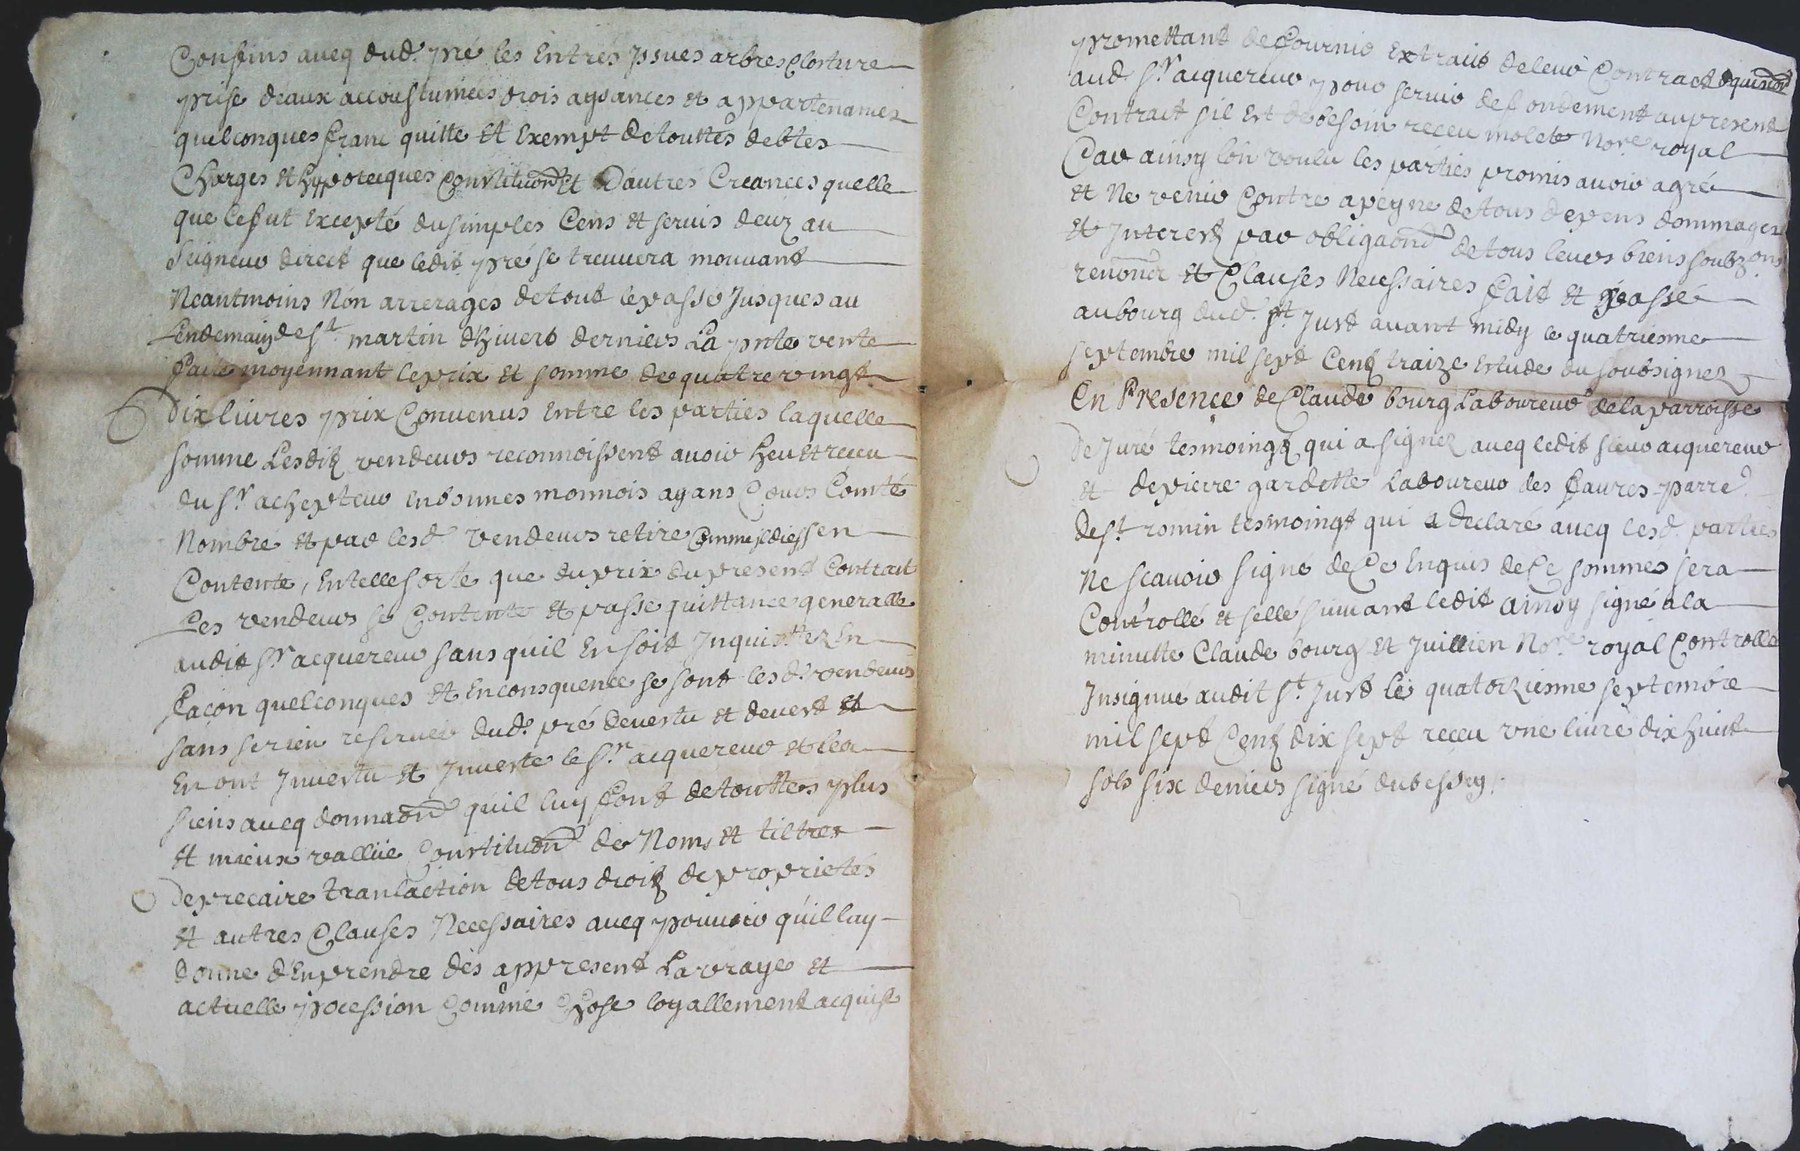 Confins avecq dud. pré les Entrés jssues arbres Closture
prise deaux accoustumées drois aysances et appartenances
quelconques franc quitte et Exempt de touttes debtes
Charges et hypotecques Constituõns et Dautres Creances quelle
que ce fut Excepté du simples Cens et servis deuz au
seigneur direct que ledit pré se treuvera mouvant
Neantmoins Non arrerages de tout le passé Jusques au
Lendemain de st martin dhivert derniers La pnte vente
faite moyennant le prix et somme de quatre vingt
Dix livres prix Convenus Entre les parties laquelle
somme Lesditz vendeurs reconnoissent avoir heu et receu
du sr achepteur En bonnes monnois ayans Cours Comté
Nombre et par lesd. vendeurs retire Comme
Contente, En telle sorte que du prix du present Contrait
Les vendeurs se Contente et passe quittance generalle
audit sr acquereur sans quil En soit Inquistez En
facon quelconques et En consquence se sont lesd. vendeurs
sans se rien reserver dud. pré devestu et devert et
En ont Investu et Inverte le sr acquereur et les
siens avecq donnaõn quil luy font de touttes plus
et mieux vallüe Constituõn de Noms et tiltres
De precaire translaction de tous droitz de proprietés
et autres Clauses Necessaires avecq pouvoir quil luy
donne dEn prendre dés appresent La vraye et
actuelle pocession Comme Chose loyallement acquise
promettant de fournir Extrait de leur Contract dacquison
aud sr acquereur pour servir de fondement au present
Contrait sil Est de besoin receu molet Nore royal
Car ainsy lon voulu les parties promis avoir agré
et Ne venir Contre a peyne de tous depens dommages
et Interestz par obligaõn de tous leurs biens soubz ons
renonõn et Clauses Necessaires fait et passé
au bourg dud. st Just avant midy le quatriesme
septembre mil sept Centz traize Estude du soubsignez
En Presence de Claude bourg Laboureur de la parroisse
De Juré tesmoingtz qui a signez avecq ledit sieur acquereur
et de pierre gardette Laboureur des faures parre.
de st romin tesmoingt qui a declaré avecq lesd. parties
Ne scavoir signé de Ce Enquis de Ce sommes sera
Controllé et sellé suivant ledit ainsy signé a la
minutte Claude bourg et Juillien Nore royal Controllé
Insignué audit st Just le quatorziesme septembre
mil sept Centz dix sept receu une livre dix huit
sols six deniers signé dubessey.